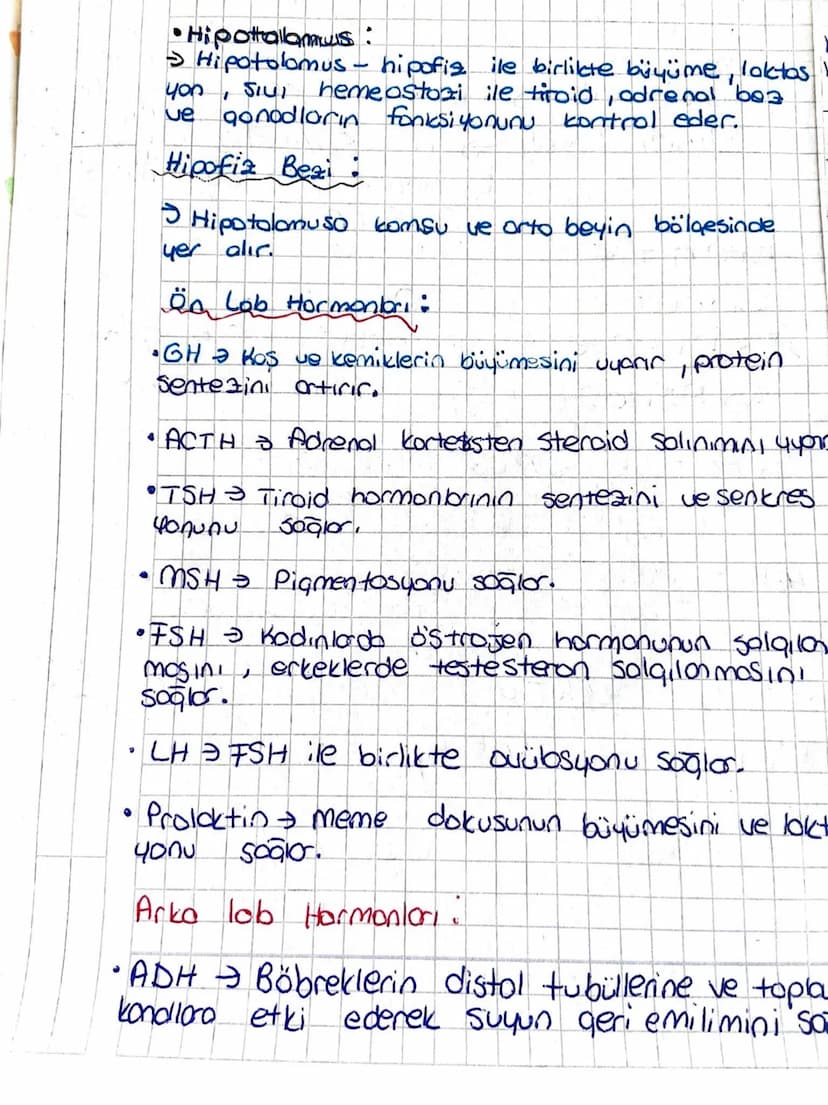 • Hipottalamus :
→ Hipotalamus - hipofiz ile birlikte büyüme, laktas
yon, sıvı hemeastazi ile tiroid, adrenal bez
ve gonadların fonksiyonunu kontrol eder.
Hipofiz Bezi :
→ Hipotalamusa komşu ve orta beyin bölgesinde
yer alır.
Ön Lob Hormonları :
• GH → Kas ve kemiklerin büyümesini uyarır, protein
sentezini artırır.
• ACTH → Adrenal korteksten steroid salınımını uyarı
• TSH → Tiroid hormonlarının sentezini ve senkres
yonunu sağlar.
• MSH → Pigmentasyonu sağlar.
• FSH → Kadınlarda östrojen hormonunun salgılan
masını, erkeklerde testesteron salgılanmasını
sağlar.
• LH → FSH ile birlikte ovülasyonu sağlar.
• Prolaktin → meme dokusunun büyümesini ve lakt
yonu sağlar.
Arka lob Hormonları :
• ADH → Böbreklerin distal tubüllerine ve topla
kanallara etki ederek suyun geri emilimini sa